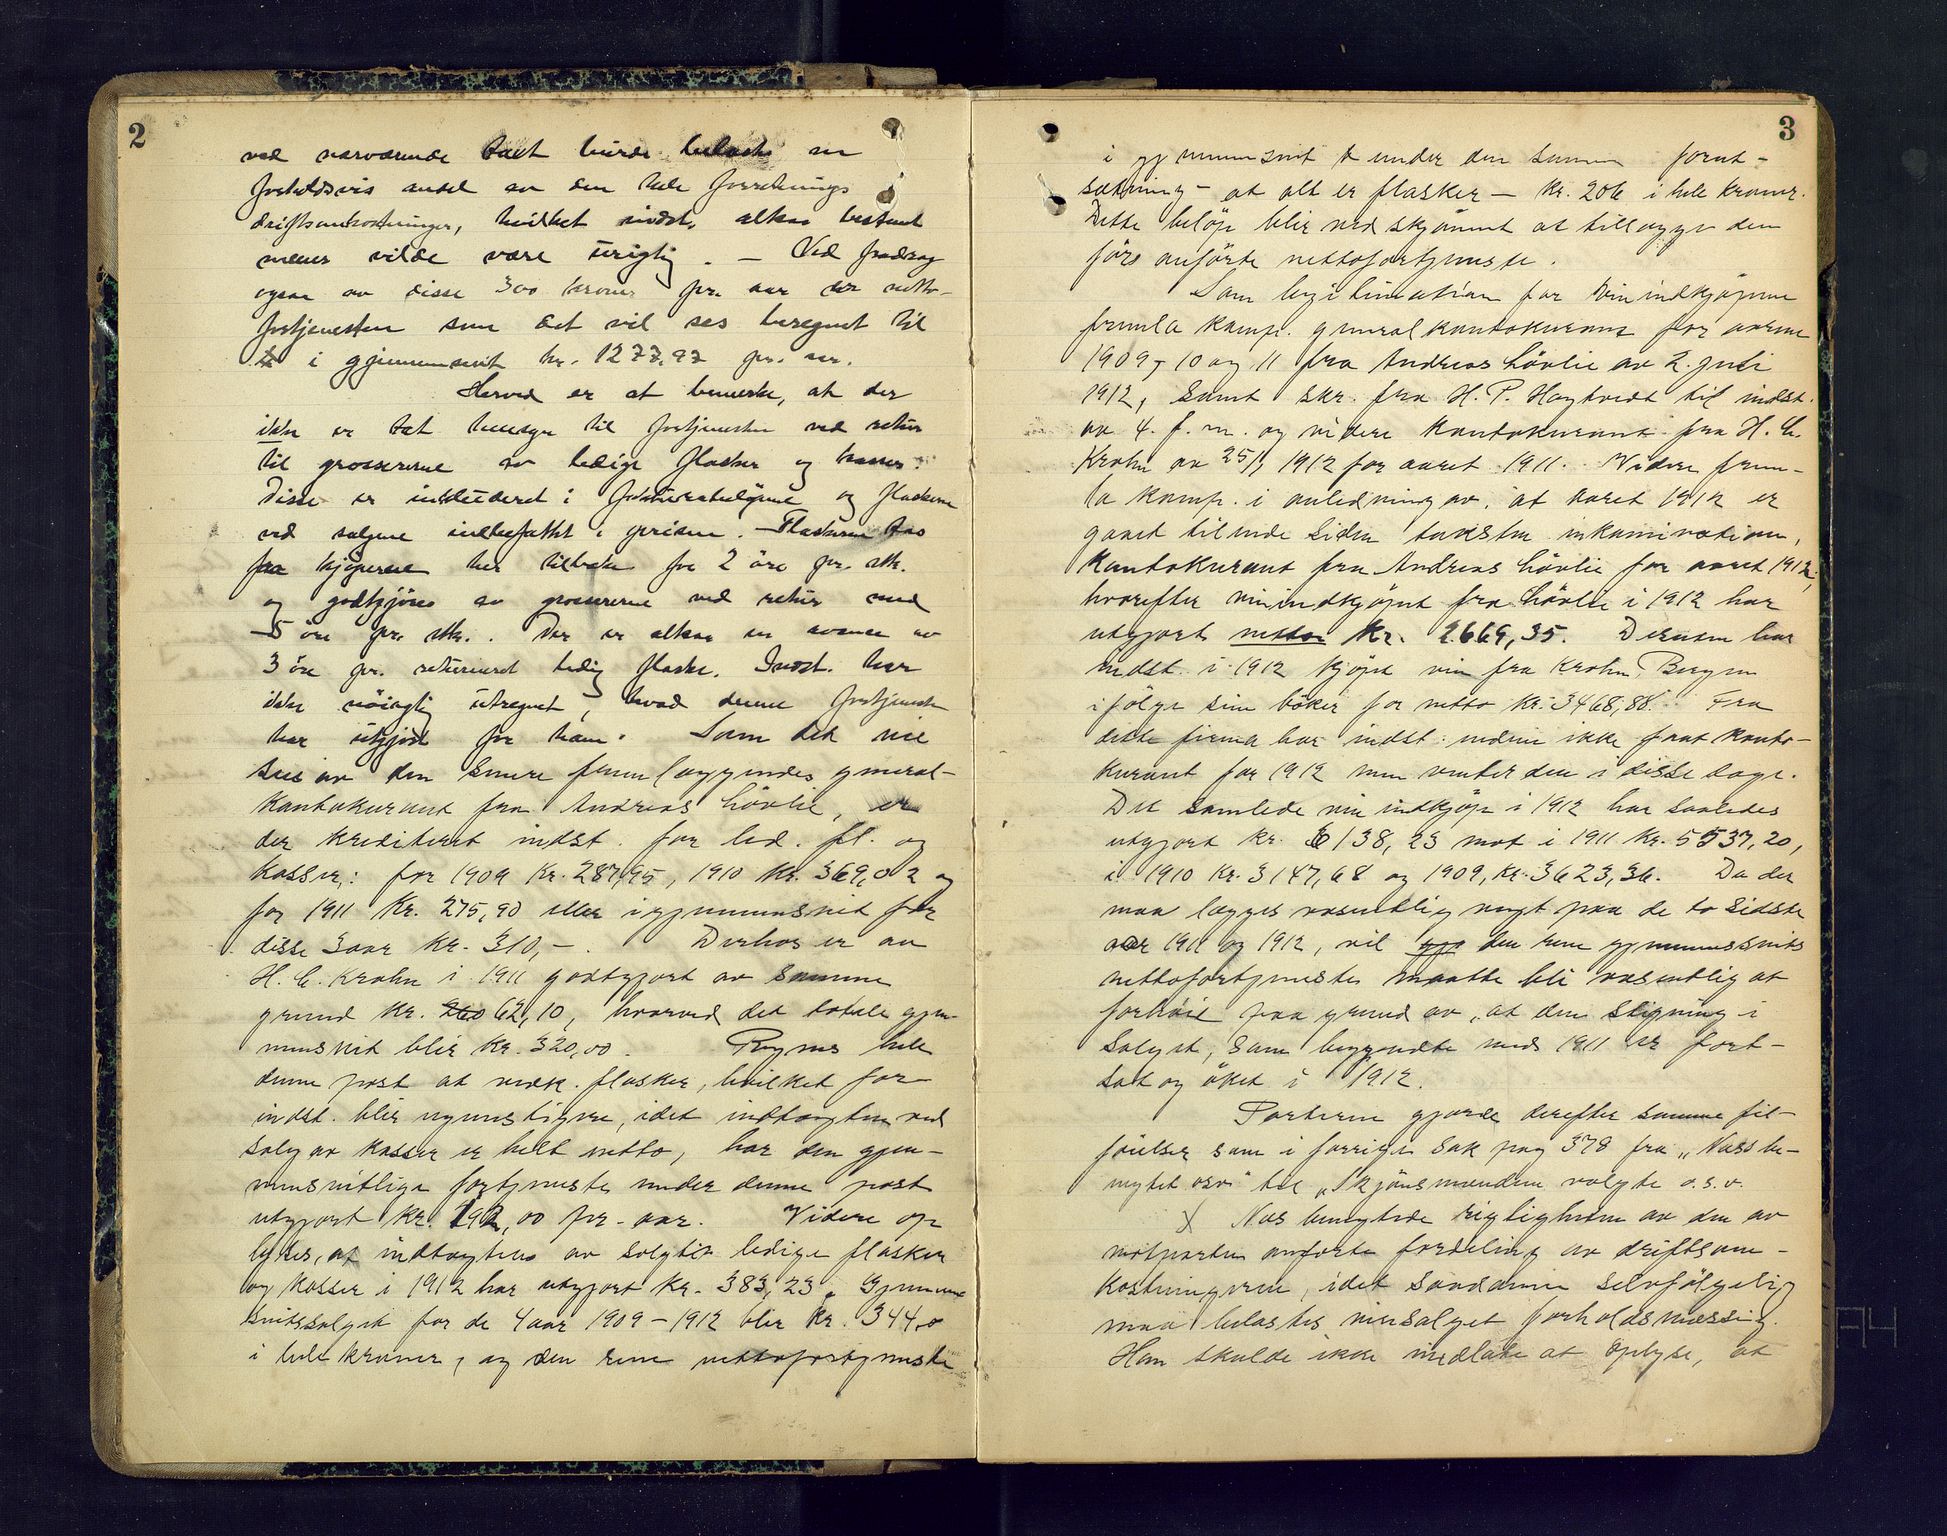 2
ved nærværende takst burde belastes en
forholdsvis andel av den hele forretnings
driftsomkostninger, hvilket indst. altsaa bestemt
mener vilde være urigtig. — Ved fradrag
ogsaa av disse 300 kroner pr. aar er netto-
fortjenesten som det vil ses beregnet til
i gjennemsnit kr. 1277,97 pr. aar.
Herved er at bemerke, at der
ikke er tat hensyn til fortjenesten ved retur
til grossererne av ledige flasker og kasser.
Disse er inkluderet i fakturabeløpene og flaskerne
ved salgene indbefattet i prisen. — Flaskerne tas
fra kjøperne her tilbake for 2 öre pr. stk.
og godtgjöres av grossererne ved retur med
5 öre pr. stk. Der er altsaa en avance av
3 öre pr. returneret ledig flaske. Indst. har
ikke nöiagtig utregnet, hvad denne fortjeneste
har utgjort for ham. Som det vil
sees av den senere fremlæggendes general-
kontokurant fra Andreas Lövlie, er
der krediteret indst. for led. fl. og
kasser: for 1909 kr. 287,95, 1910 kr. 369,02 og
for 1911 kr. 275,90 eller i gjennemsnit for
disse 3 aar kr. 310,—. Derhos er av
H. C. Krohn i 1911 godtgjort av samme
grund kr. 62,10, hvorved det totale gjen-
nemsnit blir kr. 320,00. Regnes hele
denne post at vedk. flasker, hvilket for
indst. blir ugunstigere, idet indtægten ved
salg av kasser er helt netto, har den gjen-
nemsnitlige fortjeneste under denne post
utgjort kr. 192,00 pr. aar. Videre op
lyses, at indtægten av solgte ledige flasker
og kasser i 1912 har utgjort kr. 383,23. Gjennem
snitssalget for de 4 aar 1909 – 1912 blir kr. 344,0
i hele kroner, og den rene nettofortjeneste
3
i gjennemsnit under den samme forut-
sætning – at alt er flasker – kr. 206 i hele kroner.
Dette beløp blir ved skjönnet at tillægge den
för anförte nettofortjeneste.
Som legitimation for vinindkjøpene
fremla komp. generalkontokurant for aarene
1909, 10 og 11 fra Andreas Lövlie av 2. juli
1912, samt skr. fra H. P. Høgtvedt til indst.
av 4. f. m. og videre kontokurant fra H. C.
Krohn av 25/1 1912 for aaret 1911. Videre frem-
la komp. i anledning av, at aaret 1912 er
gaaet tilende siden takstens inkamination,
kontokurant fra Andreas Lövlie for aaret 1912,
hvorefter vinindkjøpet fra Lövlie i 1912 har
utgjort netto kr. 2669,35. Dernæst har
indst. i 1912 kjöpt vin fra Krohn, Bergen
ifölge sine böker for netto kr. 3468,88. Fra
dette firma har indst. endnu ikke faat konto-
kurant for 1912 men venter den i disse dage.
Det samlede vinindkjöp i 1912 har saaledes
utgjort kr. 6138,23 mot i 1911 kr. 5537,20,
i 1910 kr. 3147,68 og 1909, kr. 3623,36. Da der
maa lægges væsentlig vegt paa de to sidste
aar 1911 og 1912, vil den rene gjennemsnits
nettofortjeneste maatte bli væsentlig at
forhöie paa grund av, at den stigning i
salget, som begyndte med 1911 er fort-
sat og öket i 1912.
Parterne gjorde derefter samme til-
föielser som i forrige sak pag 378 fra „Næss be-
nyttet osv" til „Skjönsmændene valgte o.s.v.
X Næs benegtede rigtigheten av den av
motparten anförte fordeling av driftsom-
kostningerne, idet saadanne selvfölgelig
maa belastes vinsalget forholdsmæssig.
Han skulde ikke undlate at oplyse, at